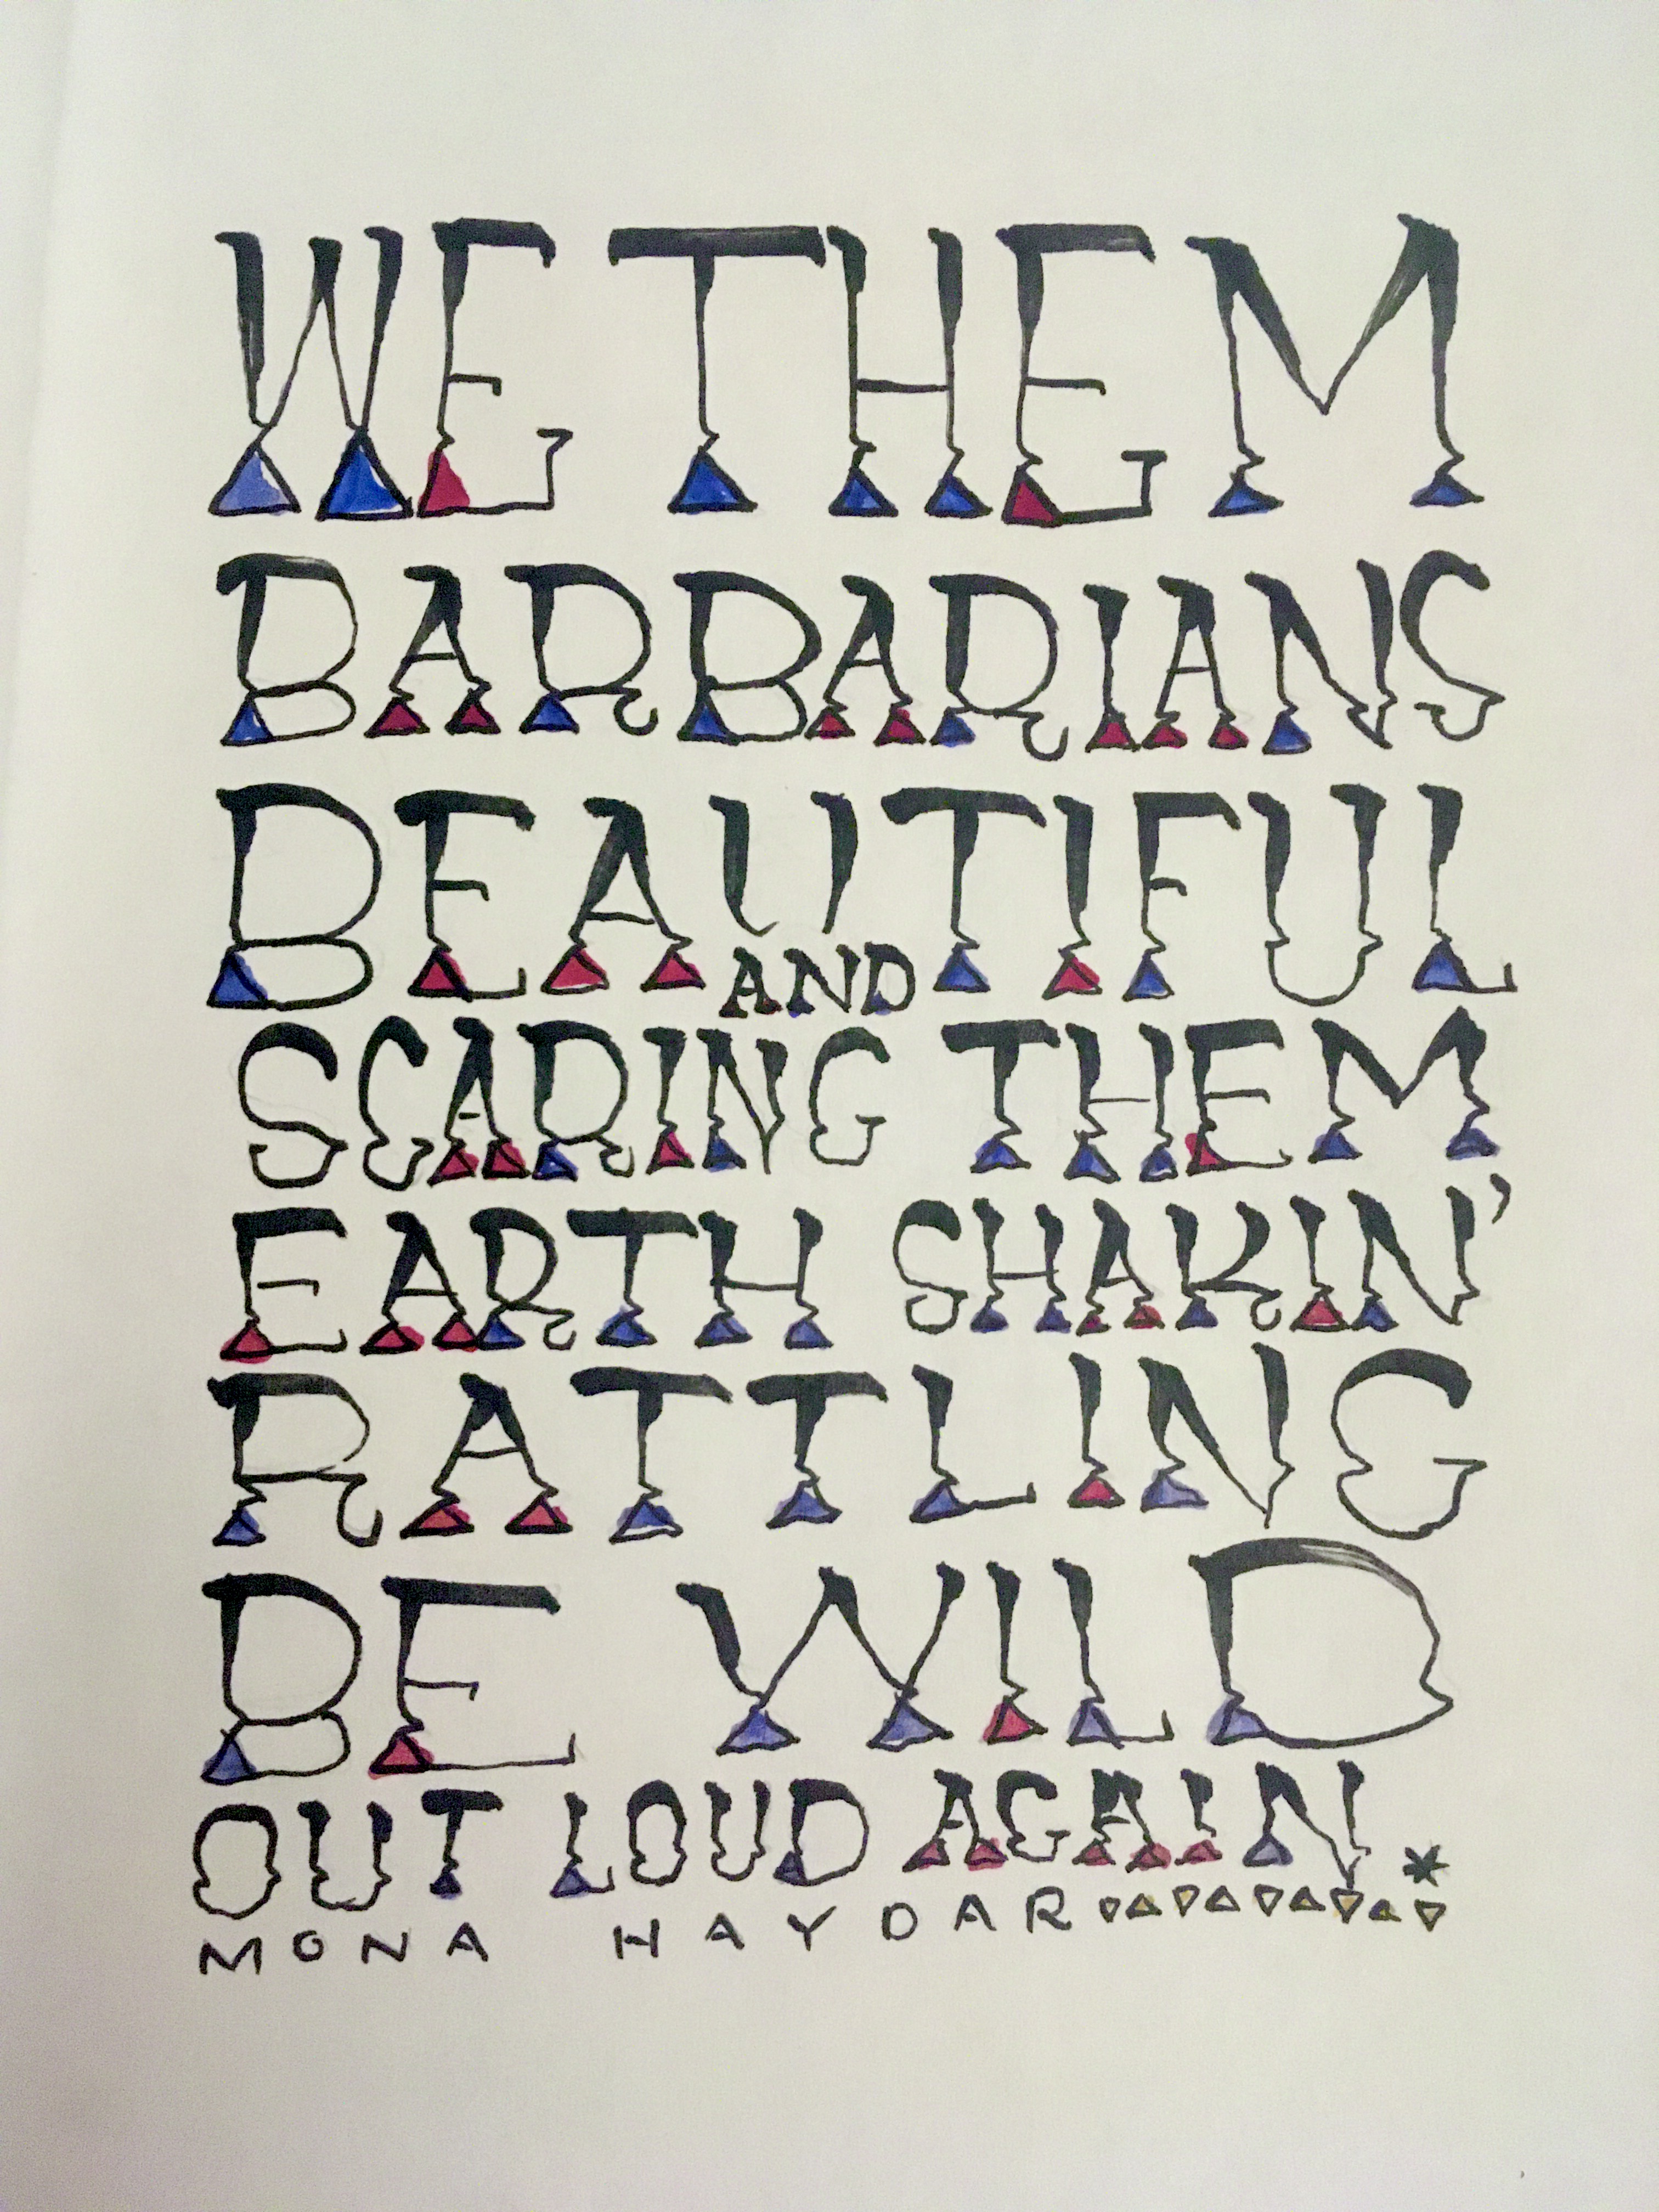 WE THEM
BARBARIANS
BEAUTIFUL
AND
SCARING THEM
EARTH SHAKIN'
RATTLING
BE WILD
OUT LOUD AGAIN.*
MONA HAYDAR